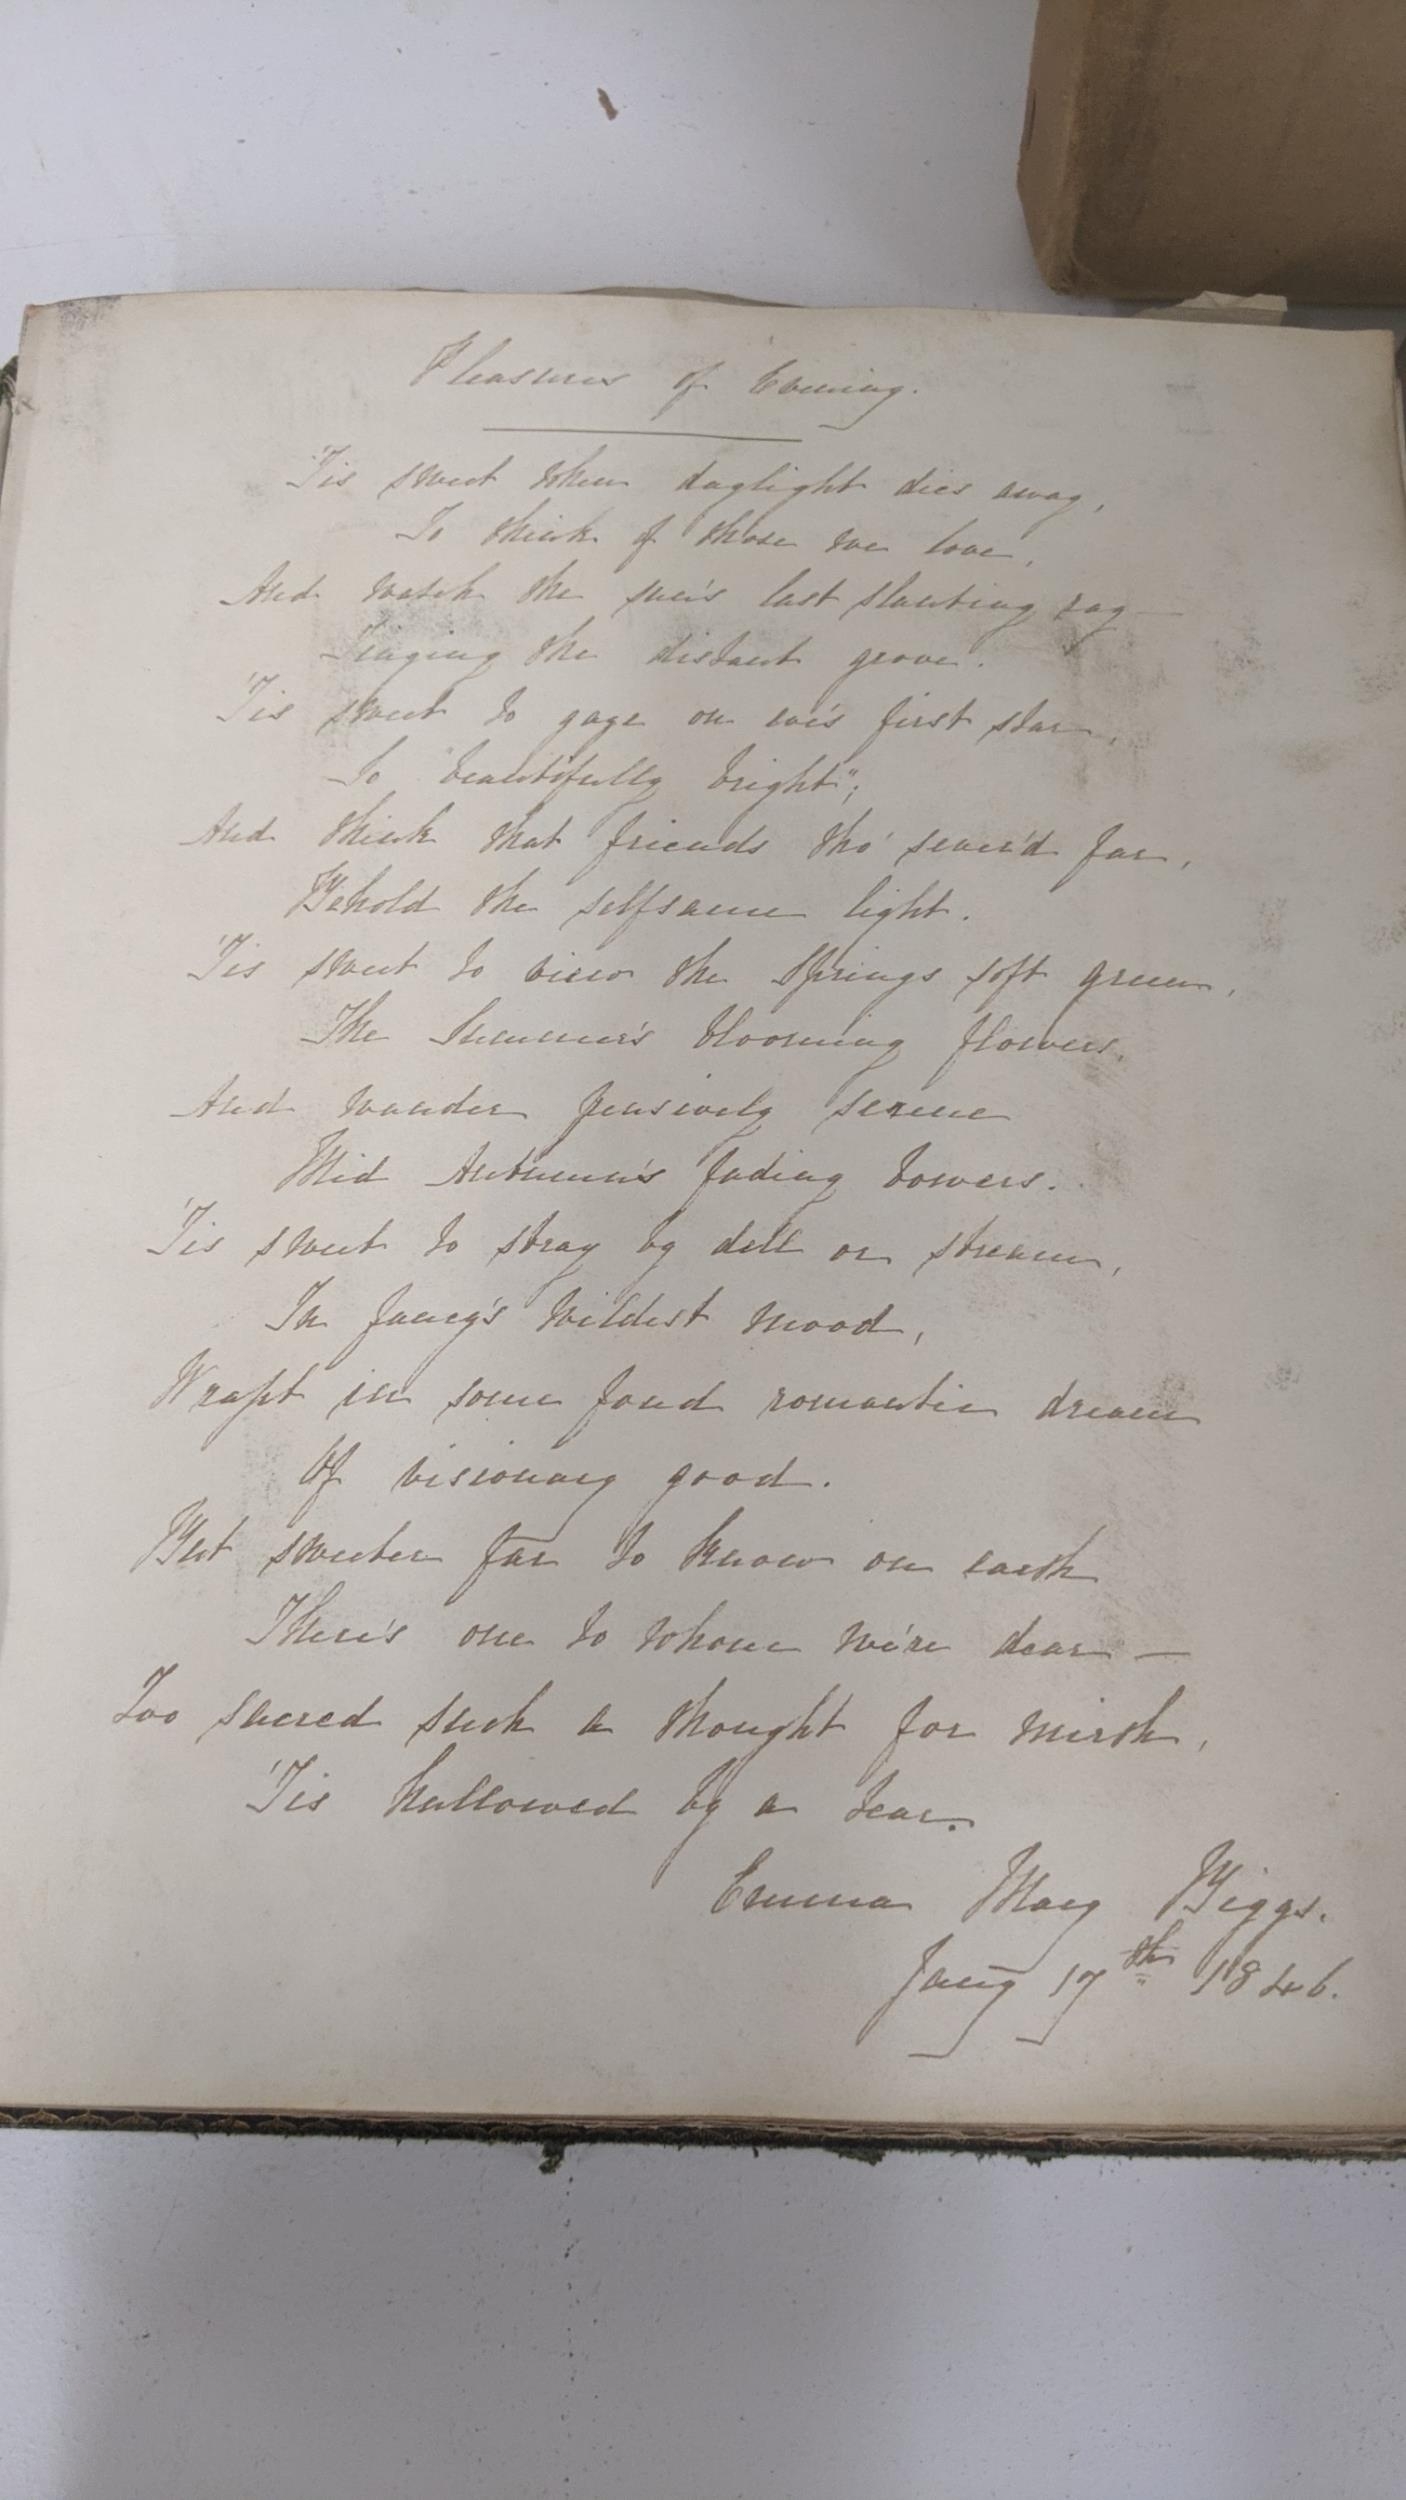 Pleasures of Evening.
'Tis sweet when daylight dies away,
To think of those we love,
And watch the sun's last slanting ray—
Tinging the distant grove.
'Tis sweet to gaze on eve's first star,
So "beautifully bright";
And think that friends tho' sever'd far,
Behold the selfsame light.
'Tis sweet to view the Springs soft green,
The Summer's blooming flowers,
And wander pensively serene
Mid Autumn's fading bowers.
'Tis sweet to stray by dell or stream,
In fancy's wildest mood,
Wrapt in some fond romantic dream
Of visionary good.
But sweeter far to know on earth
There's one to whom we're dear—
Too sacred such a thought for mirth,
'Tis hallowed by a tear.
Emma Mary Biggs.
Jany 17th 1846.